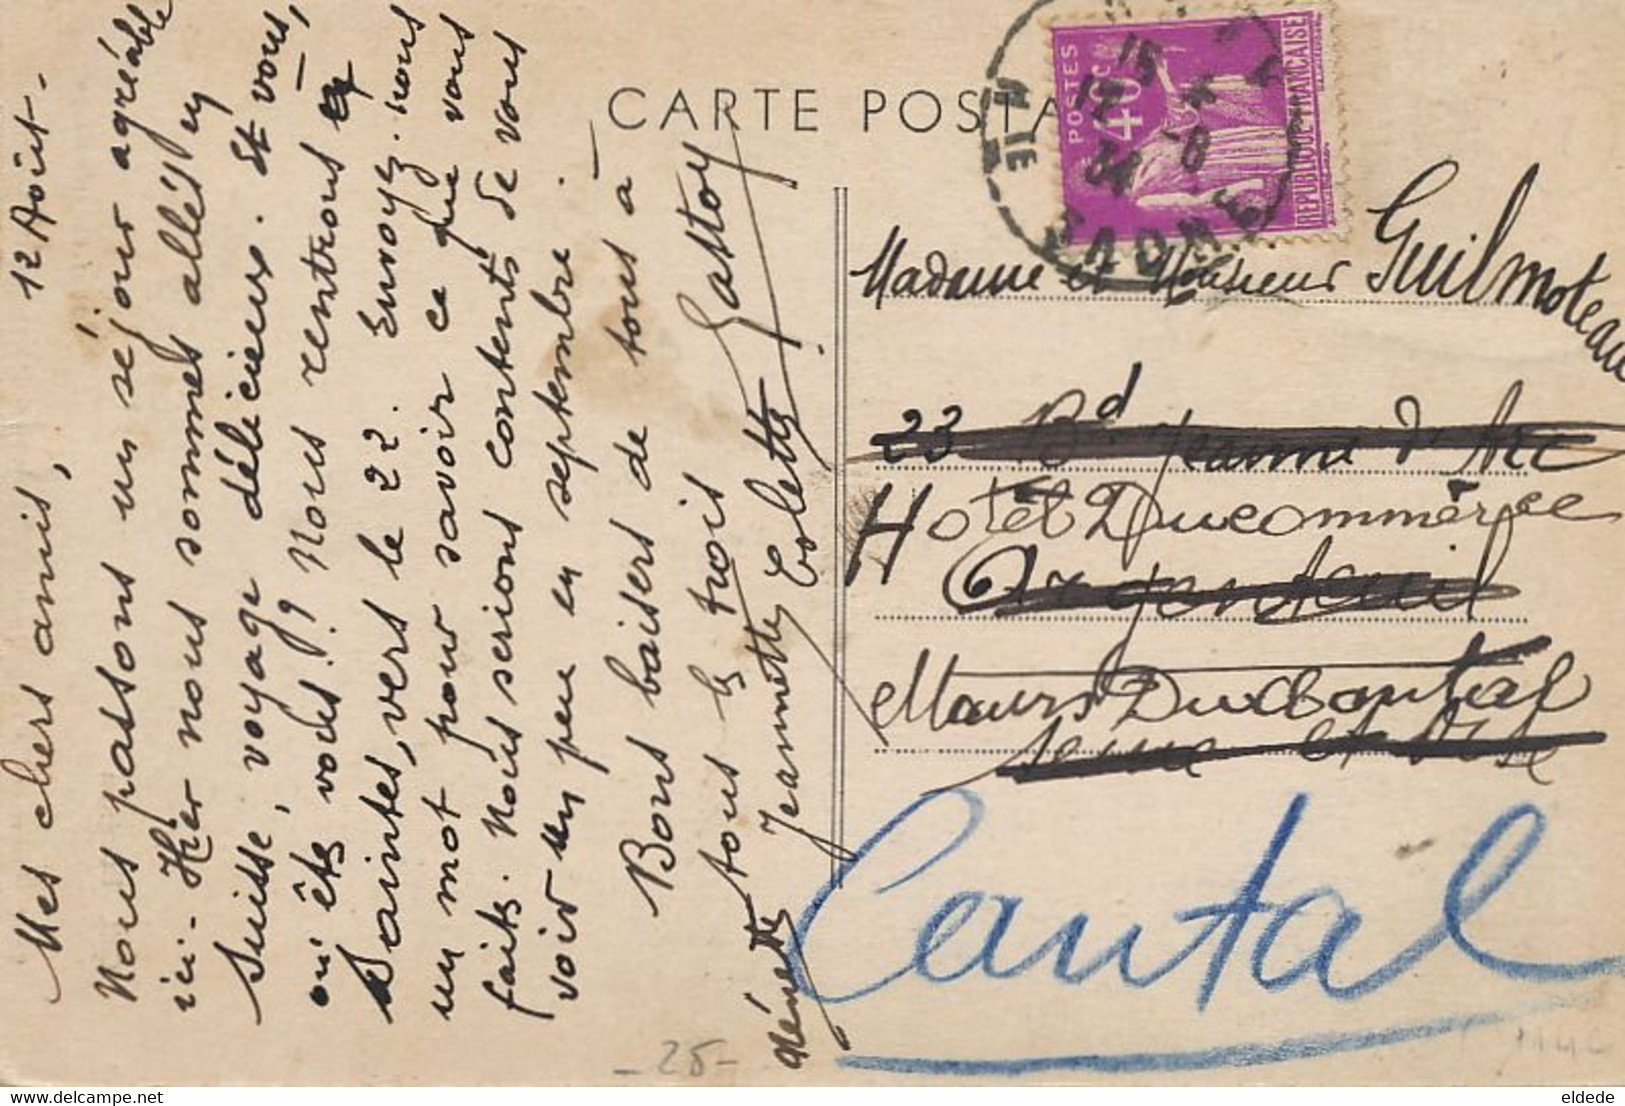 12 Août -
Mes chers amis,
Nous passons un séjour agréable
ici - Hier nous sommes allés en
Suisse, voyage délicieux. Et vous,
où êtes vous ? Nous rentrons à
Saintes, vers le 22. Envoyez-nous
un mot pour savoir ce que vous
faites. Nous serions contents de vous
voir un peu en septembre.
Bons baisers de tous à
tous les trois
Gaston
Ménette Jeannette Colette
CARTE POSTA
POSTES
40c
REPUBLIQUE FRANÇAISE
15
12 -8
34
Madame et Monsieur Guilmoteau
23 Bd Jeanne d'Arc
Hotel Du commerce
Argenteuil
Maurs Du Cantal
Seine et Oise
Cantal
- 25 -
eldede